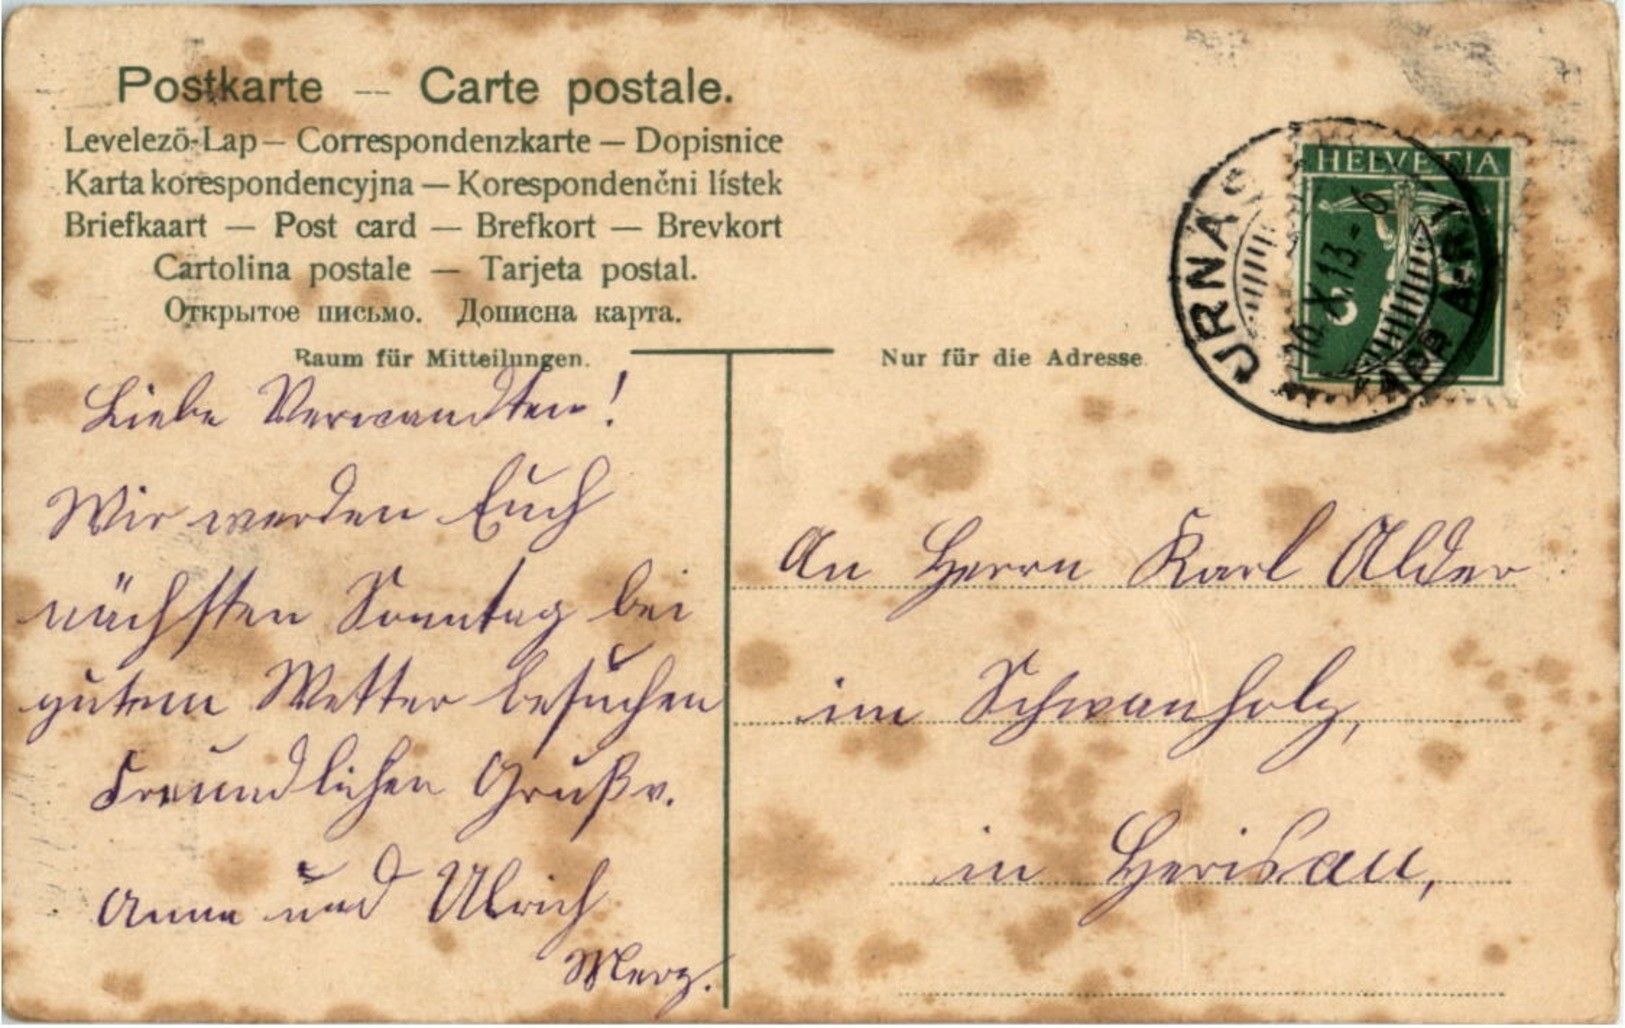 Postkarte — Carte postale.
Levelezö-Lap — Correspondenzkarte — Dopisnice
Karta korespondencyjna — Korespondenčni lístek
Briefkaart — Post card — Brefkort — Brevkort
Cartolina postale — Tarjeta postal.
Открытое письмо. Дописна карта.
Raum für Mitteilungen.
Liebe Verwandten!
Wir werden Euch
nächsten Sonntag bei
gutem Wetter besuchen
Freundlichen Gruß v.
Anna und Ulrich
Merz.
Nur für die Adresse.
HELVETIA
5
URNÄS
16.X.13-6
An Herrn Karl Alder
im Schwanholz,
in Herisau,